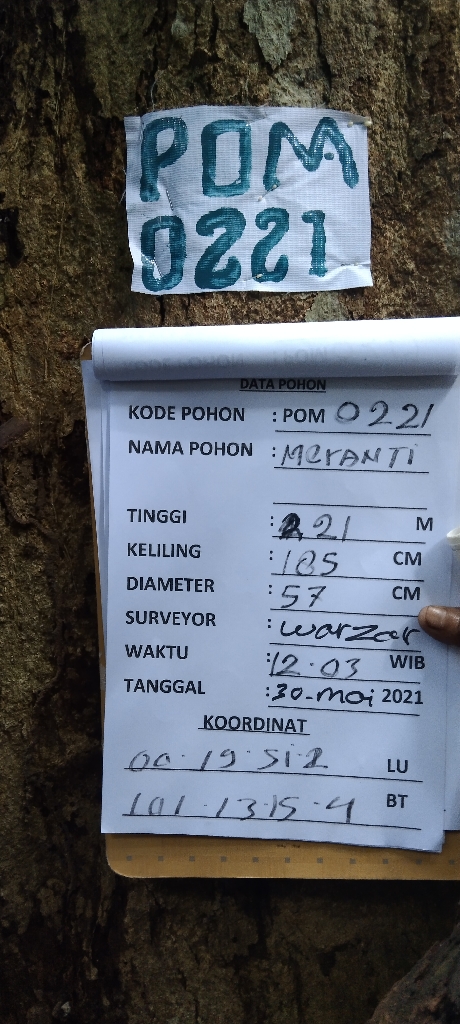 POM
0221
DATA POHON
KODE POHON : POM 0221
NAMA POHON : MerANTi
TINGGI : 21 M
KELILING : 185 CM
DIAMETER : 57 CM
SURVEYOR : warzar
WAKTU : 12.03 WIB
TANGGAL : 30-mei 2021
KOORDINAT
00.19.51.2 LU
101.13.15.4 BT